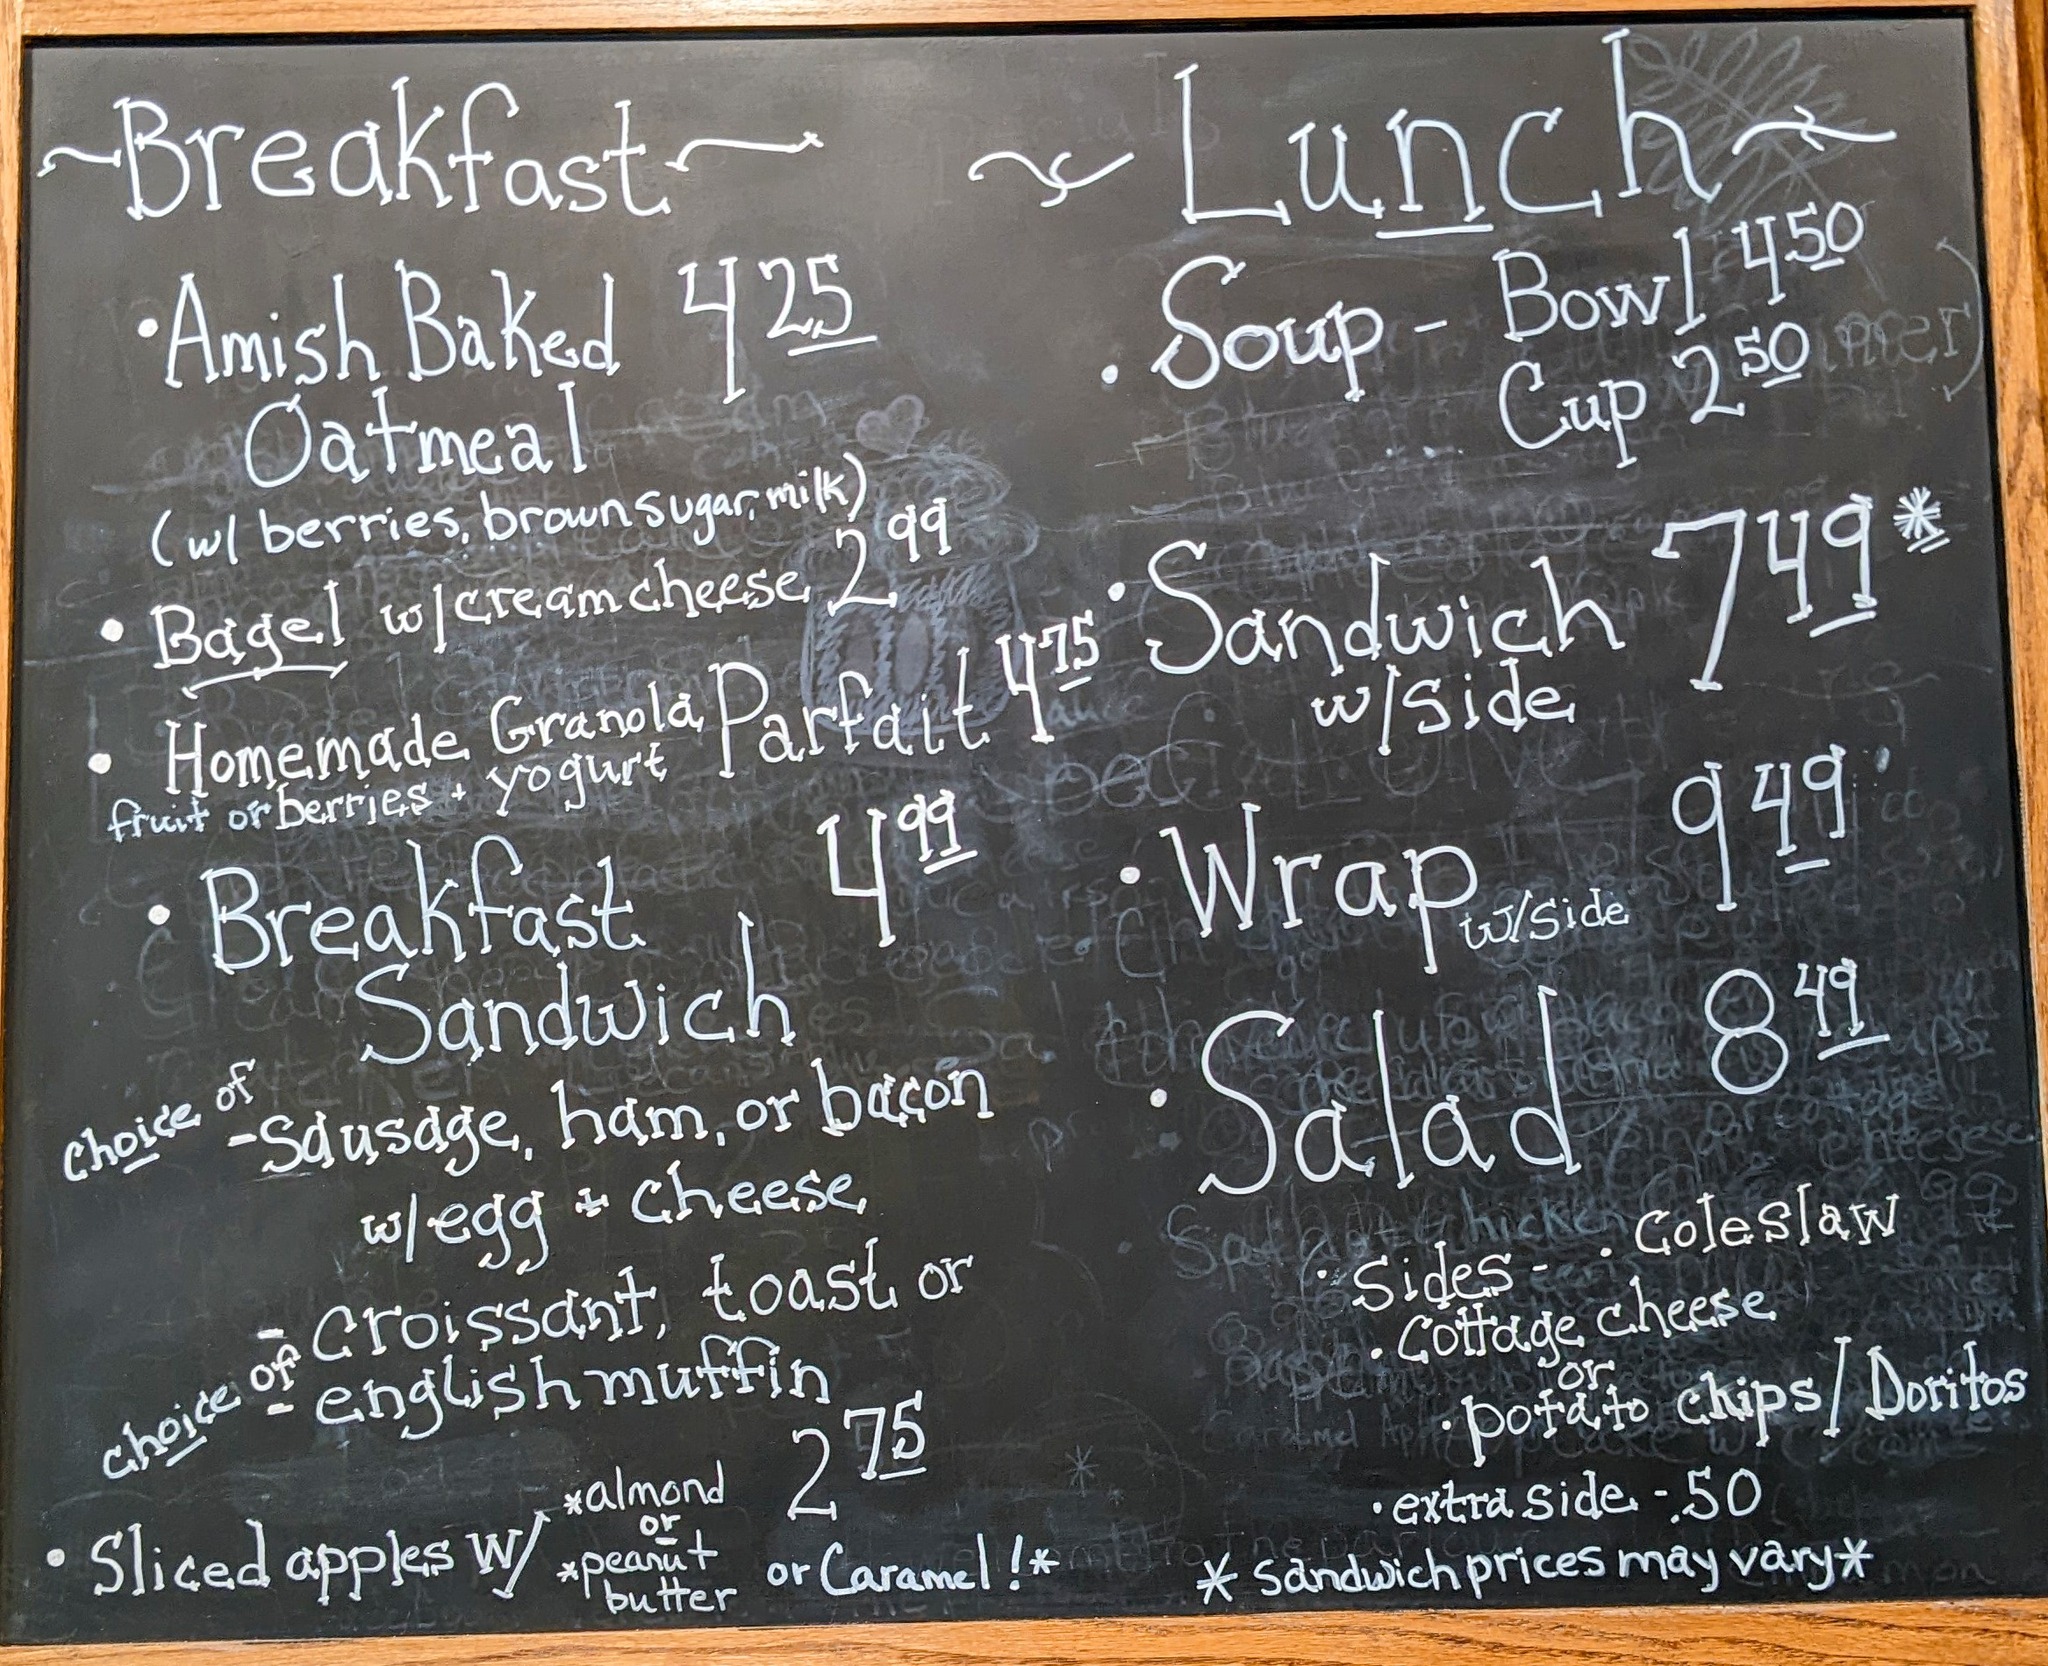 ~Breakfast~
• Amish Baked 4 25
Oatmeal
(w/ berries, brown sugar, milk)
• Bagel w/ cream cheese 2 99
• Homemade Granola Parfait 4 75
fruit or berries + yogurt
• Breakfast 4 99
Sandwich
choice of
- Sausage, ham, or bacon
w/ egg + cheese
choice of
- Croissant, toast or
- english muffin
• Sliced apples w/ *almond 2 75
or
*peanut
butter
or Caramel!*
~Lunch~
• Soup - Bowl 4 50
Cup 2 50
• Sandwich 7 49*
w/side
• Wrap w/side 9 49
• Salad 8 49
• Sides - • Coleslaw
• Cottage cheese
or
• potato chips/Doritos
• extra side - .50
* sandwich prices may vary *